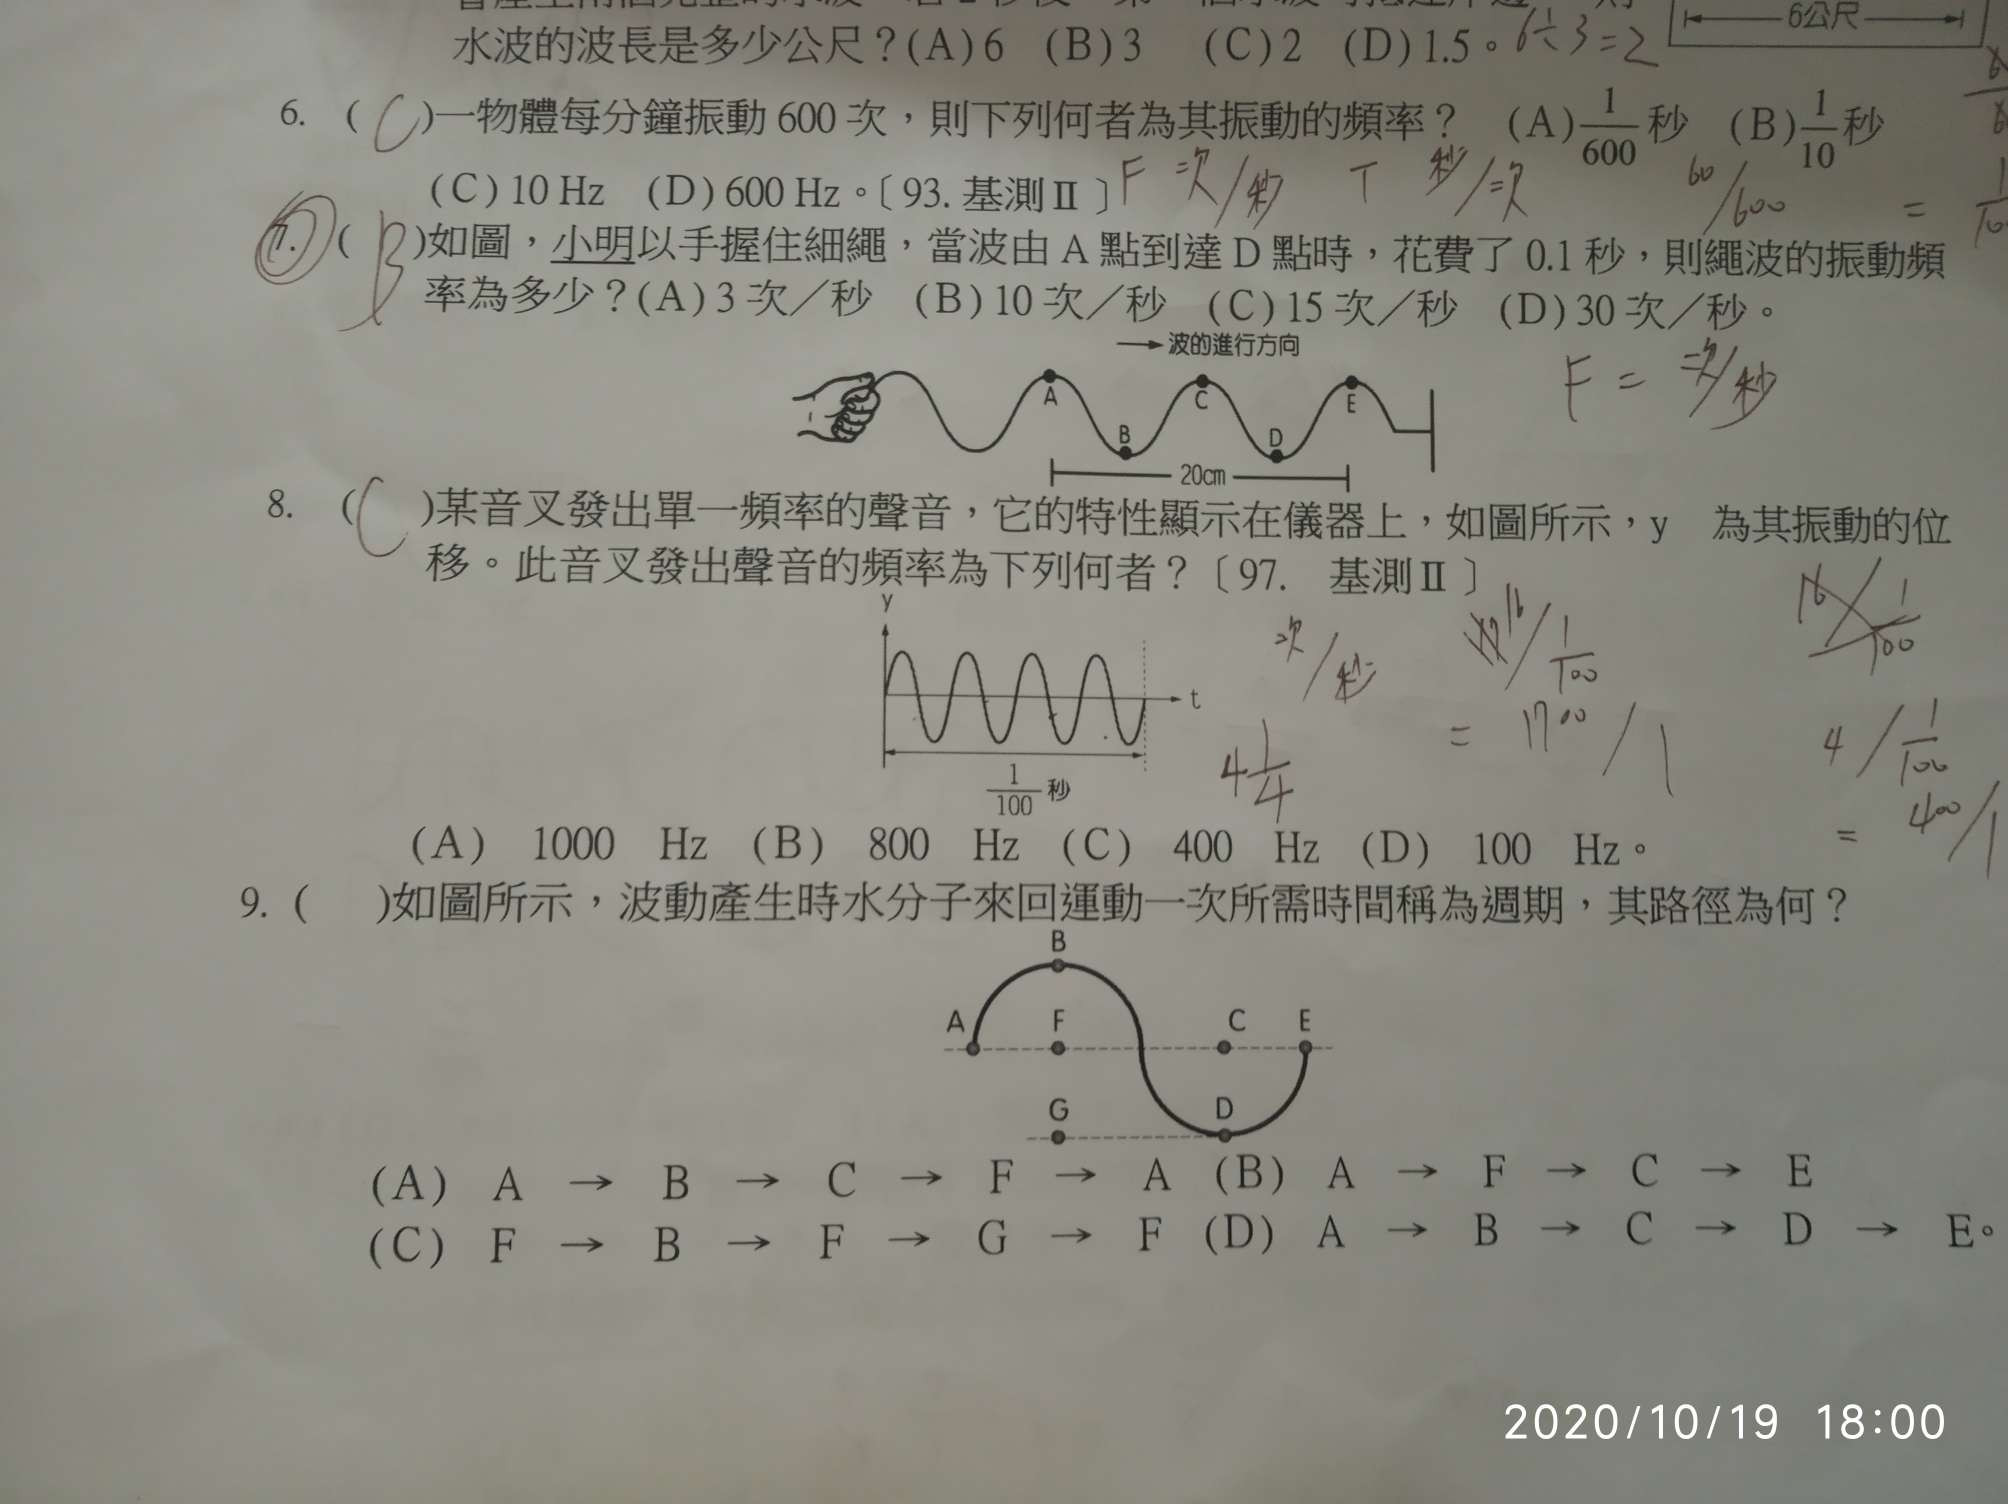 水波的波長是多少公尺？(A)6 (B)3 (C)2 (D)1.5。 6÷3=2
6公尺
6. ( C )一物體每分鐘振動 600 次，則下列何者為其振動的頻率？ (A) 1/600 秒 (B) 1/10 秒
(C) 10 Hz (D) 600 Hz。〔93. 基測Ⅱ〕 F = 次/秒 T 秒/次 60/600 = 1/10
7. ( B )如圖，小明以手握住細繩，當波由 A 點到達 D 點時，花費了 0.1 秒，則繩波的振動頻
率為多少？(A) 3 次／秒 (B) 10 次／秒 (C) 15 次／秒 (D) 30 次／秒。
→波的進行方向
F = 次/秒
A C E
B D
20cm
8. ( C )某音叉發出單一頻率的聲音，它的特性顯示在儀器上，如圖所示，y 為其振動的位
移。此音叉發出聲音的頻率為下列何者？〔97. 基測Ⅱ〕
y
次/秒 16/ 1/100 16/ 1/100
t
= 1700/1 4/ 1/100
4 1/4
1/100 秒
= 400/1
(A) 1000 Hz (B) 800 Hz (C) 400 Hz (D) 100 Hz。
9. ( )如圖所示，波動產生時水分子來回運動一次所需時間稱為週期，其路徑為何？
B
A F C E
G D
(A) A → B → C → F → A (B) A → F → C → E
(C) F → B → F → G → F (D) A → B → C → D → E。
2020/10/19 18:00